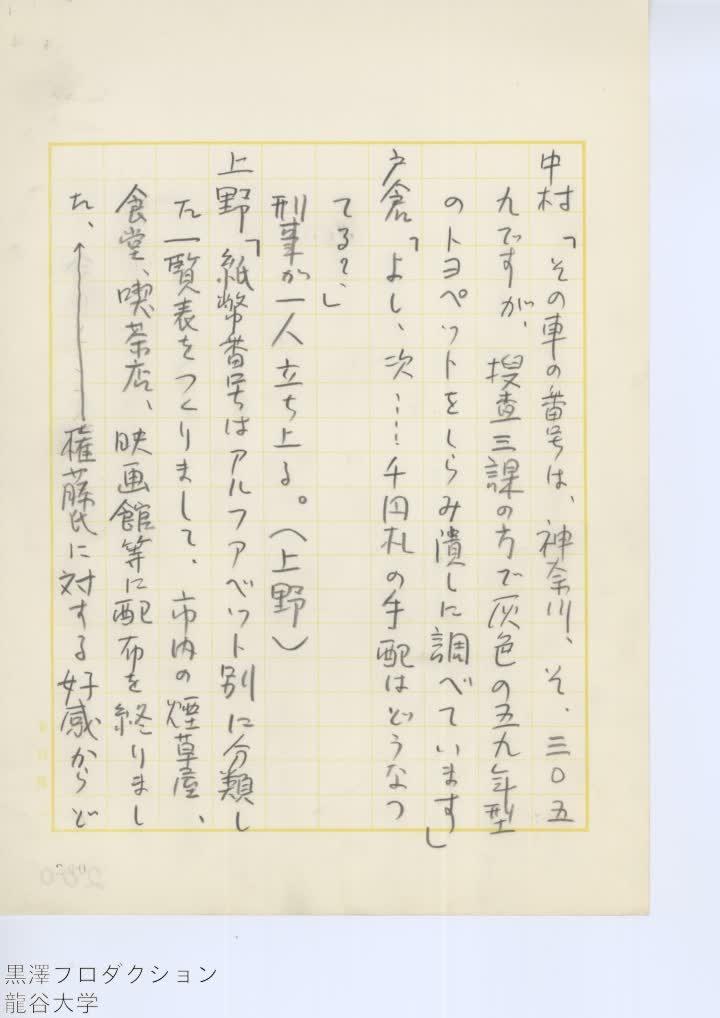 中村「その車の番号は、神奈川、そ、三〇五
九ですが、捜査三課の方で灰色の五九年型
のトヨペットをしらみ潰しに調べています」
戸倉「よし、次……千円札の手配はどうなつ
てる？」
刑事が一人立ち上る。（上野）
上野「紙幣番号はアルファベット別に分類し
た一覧表をつくりまして、市内の煙草屋、
食堂、喫茶店、映画館等に配布を終りまし
た、権藤氏に対する好感からど
黒澤プロダクション
龍谷大学